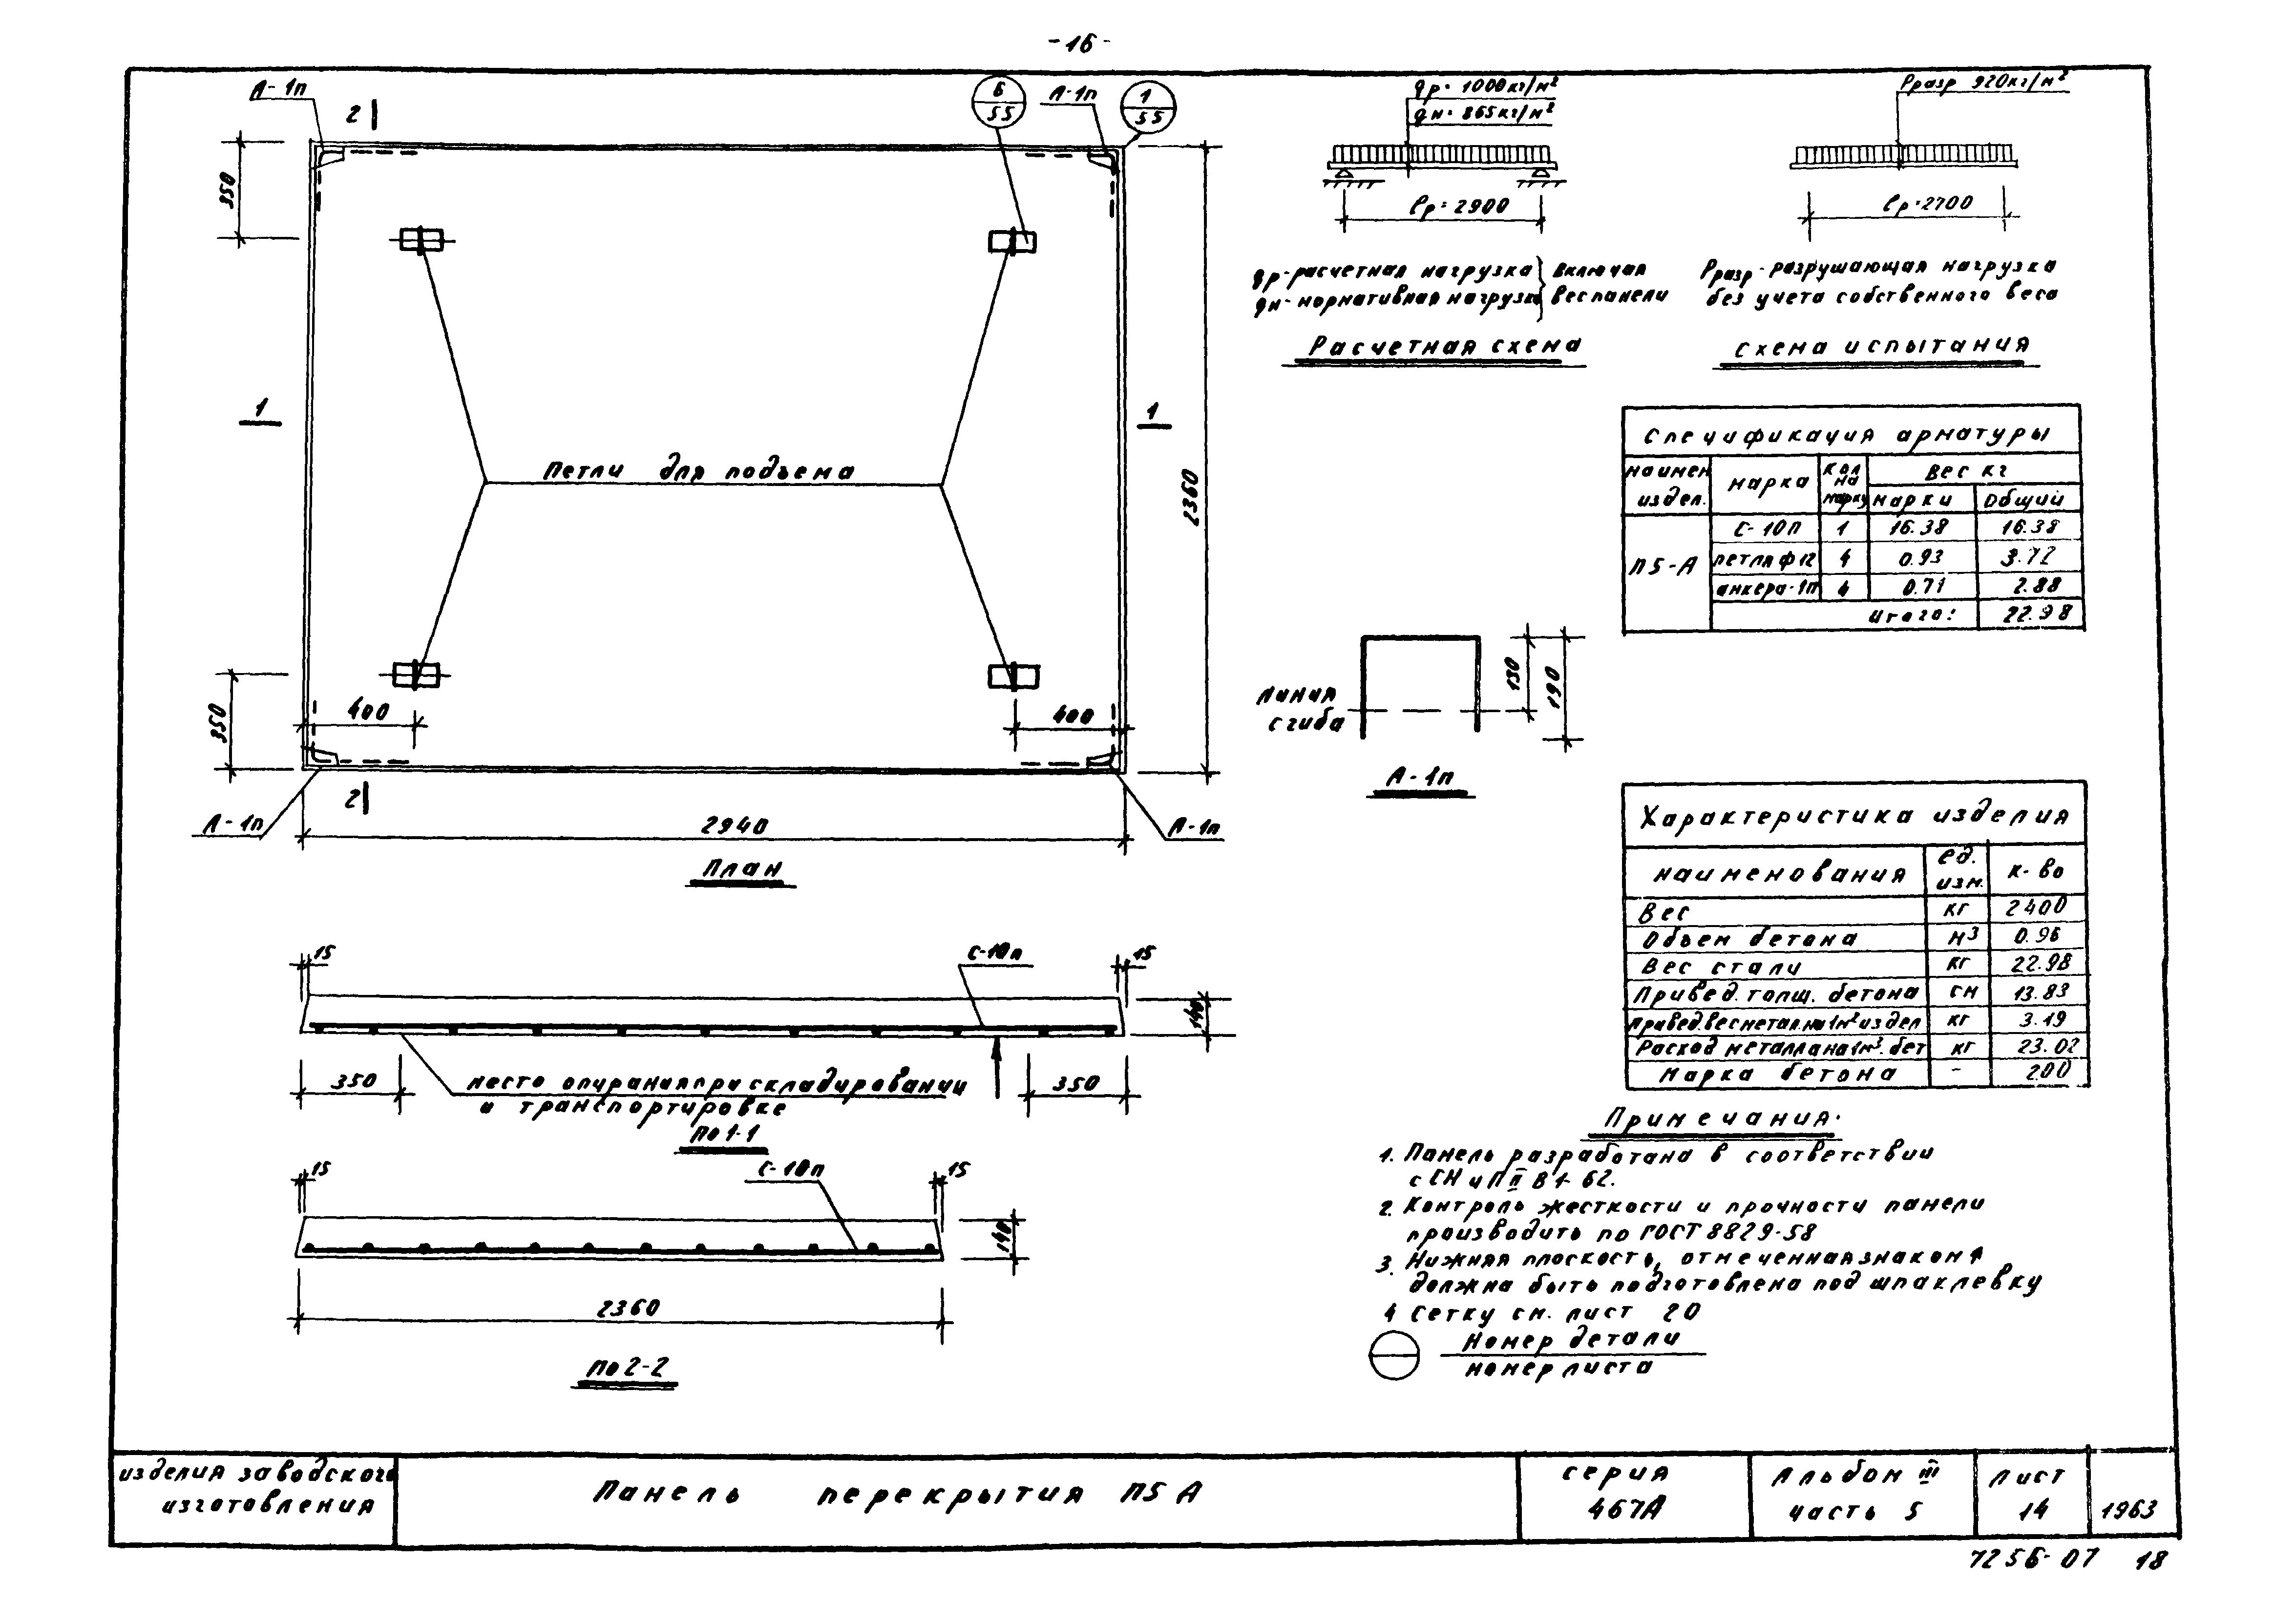 -16-
А-1п
2
6
55
А-1п
1
55
350
1
1
Петли для подъема
2360
350
400
400
А-1п
2
2940
А-1п
План
15
С-10п
15
140
350
место опирания при складировании
и транспортировке
350
по 1-1
15
С-10п
15
140
2360
по 2-2
qр= 1000кг/м²
qн= 865кг/м²
ℓр=2900
qр-расчетная нагрузка } включая
qн-нормативная нагрузка } вес панели
Расчетная схема
Рразр 920кг/м²
ℓр=2700
Рразр-разрушающая нагрузка
без учета собственного веса
Схема испытания
Спецификация арматуры
наимен издел. марка кол на марку Вес кг
марки общий
П5-А
С-10п 1 16.38 16.38
петля ф12 4 0.93 3.72
анкера-1п 4 0.71 2.88
Итого: 22.98
линия
сгиба
130
190
А-1п
Характеристика изделия
наименования ед. изм. к-во
Вес кг 2400
Объем бетона м³ 0.96
Вес стали кг 22.98
Привед. толщ. бетона см 13.83
Привед. вес метал. на 1м² издел кг 3.19
Расход металла на 1м³. бет кг 23.02
Марка бетона - 200
Примечания.
1. Панель разработана в соответствии
с СНиП II В 1-62.
2. Контроль жесткости и прочности панели
производить по ГОСТ 8829-58
3. Нижняя плоскость, отмеченная знаком ↑
должна быть подготовлена под шпаклевку
4 Сетку см. лист 20
Номер детали
номер листа
изделия заводского
изготовления
Панель перекрытия П5А
серия
467А
Альбом III
часть 5
лист
14
1963
7256-07 18